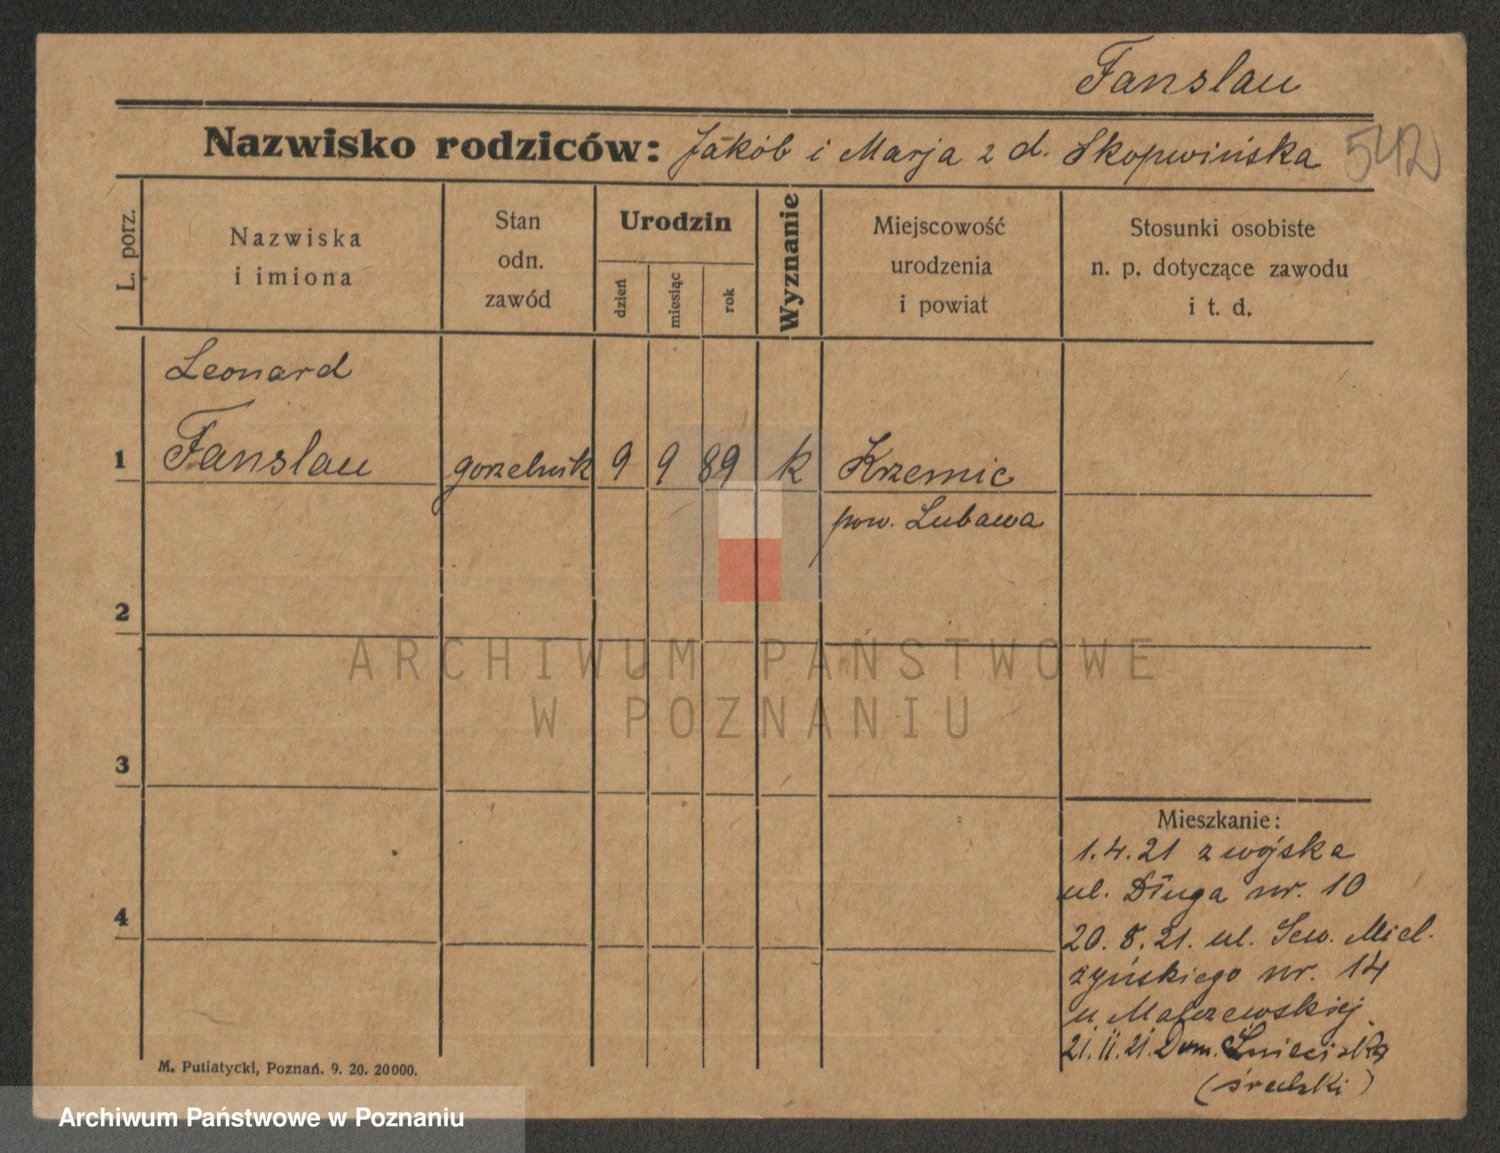 Fanslau
Nazwisko rodziców: Jakób i Marja z d. Skopwińska
542
L. porz.
Nazwiska
i imiona
Stan
odn.
zawód
Urodzin
dzień
miesiąc
rok
Wyznanie
Miejscowość
urodzenia
i powiat
Stosunki osobiste
n. p. dotyczące zawodu
i t. d.
Leonard
1 Fanslau gorzelnik 9 9 89 k Krzemic
pow. Lubawa
2
ARCHIWUM PAŃSTWOWE
W POZNANIU
3
Mieszkanie:
1.4.21 z wojska
ul. Długa nr. 10
4
20.8.21. ul. Sew. Miel.
żyńskiego nr. 14
u. Malczewskiej
21.11.21. Dom.
(średzki)
M. Putiatycki, Poznań. 9. 20. 20000.
Archiwum Państwowe w Poznaniu